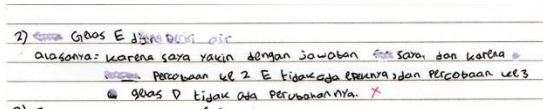 2) Gelas E diisi air
alasannya: karena saya yakin dengan jawaban saya, dan karena
Percobaan ke 2 E tidak ada efeknya, dan Percobaan ke3
gelas D tidak ada perubahannya. x